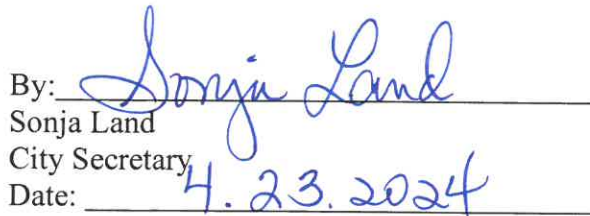 By: Sonja Land
Sonja Land
City Secretary
Date: 4.23.2024